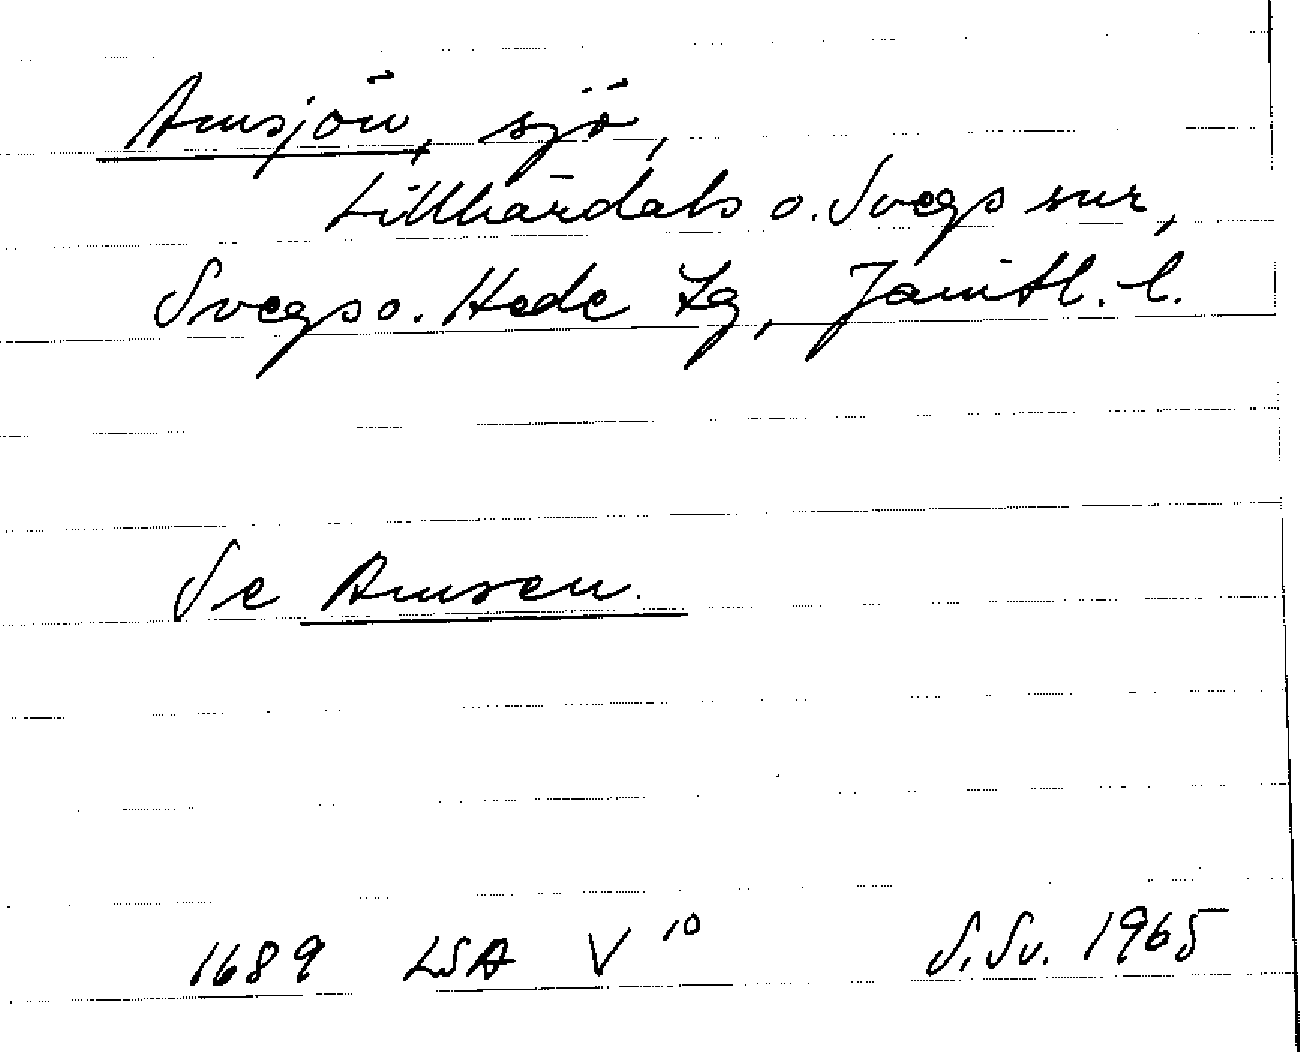 Amsjön, sjö,
Lillhärdals o. Svegs snr,
Svegs o. Hede tg, Jämtl. l.
Se Amsen.
1689 LSA V 10 S. Sv. 1965